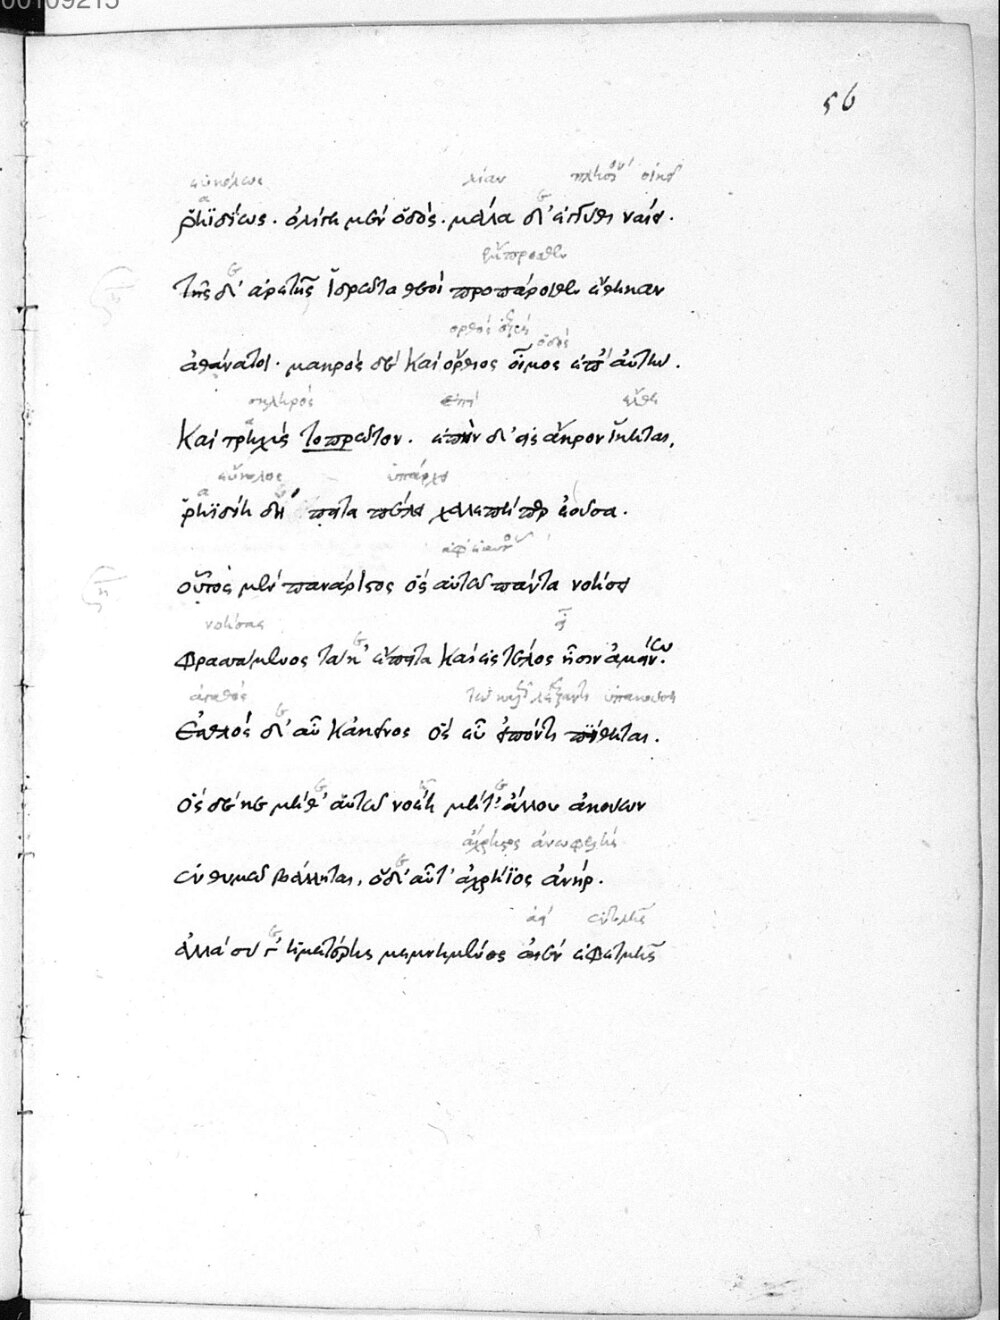 00109215
56
εὐκόλως λίαν πλησίον οἰκεῖ
ῥηϊδίως. ὀλίγη μὲν ὁδός. μάλα δ' ἐγγύθι ναίει.
ἔμπροσθεν
τῆς δ' ἀρετῆς ἱδρῶτα θεοὶ προπάροιθεν ἔθηκαν
ὀρθὸς ὁδός
ἀθάνατοι. μακρὸς δὲ καὶ ὄρθιος οἶμος ἐπ' αὐτήν.
σκληρὸς ἐπὶ ἔλθῃ
καὶ τρηχὺς τοπρῶτον. ἐπὴν δ' εἰς ἄκρον ἵκηται,
εὔκολος ὑπάρχει
ῥηϊδίη δὴ ἔπειτα πέλει χαλεπή περ ἐοῦσα.
ἀφ' ἑαυτοῦ
οὗτος μὲν πανάριστος ὃς αὐτῷ πάντα νοήσει
νοήσας ᾖ
φρασσάμενος τά κ' ἔπειτα καὶ ἐς τέλος ᾖσιν ἀμείνω.
ἀγαθὸς τῷ καλῶς λέξαντι ὑπακούσει
ἐσθλὸς δ' αὖ κἀκεῖνος ὃς εὖ εἰπόντι πίθηται.
ὃς δέ κε μήθ' αὑτῷ νοέῃ μήτ' ἄλλου ἀκούων
ἄχρηστος ἀνωφελής
ἐν θυμῷ βάλληται, ὁ δ' αὖτ' ἀχρήϊος ἀνήρ.
ἀεὶ ἐντολῆς
ἀλλὰ σύ γ' ἡμετέρης μεμνημένος αἰὲν ἐφετμῆς